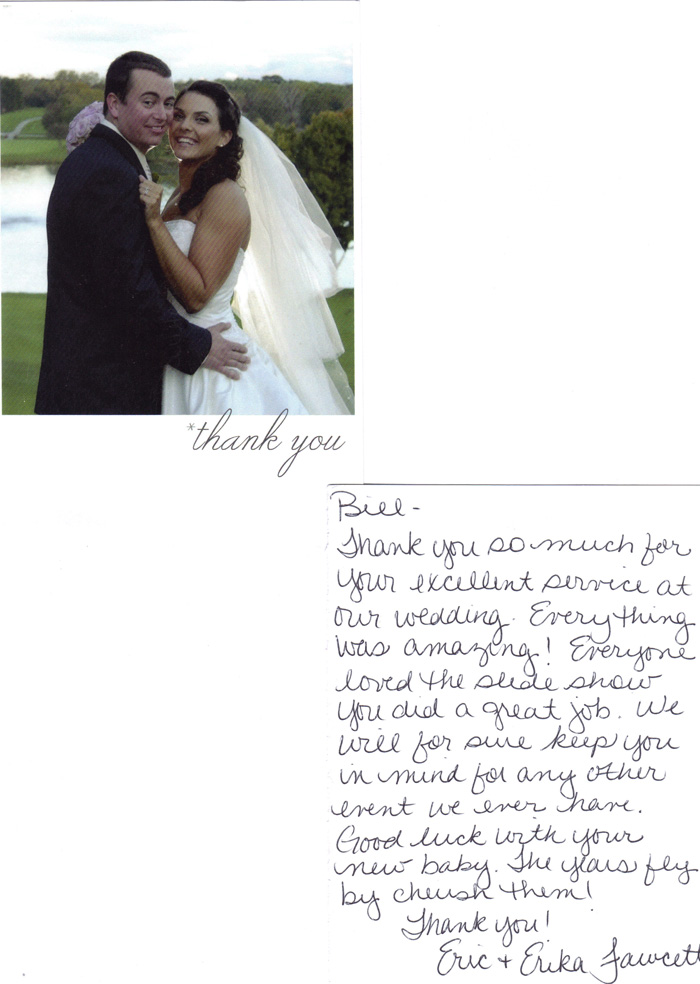 *thank you
Bill-
Thank you so much for
your excellent service at
our wedding. Everything
was amazing! Everyone
loved the slide show
you did a great job. We
will for sure keep you
in mind for any other
event we ever have.
Good luck with your
new baby. The years fly
by cherish them!
Thank you!
Eric + Erika Fawcett